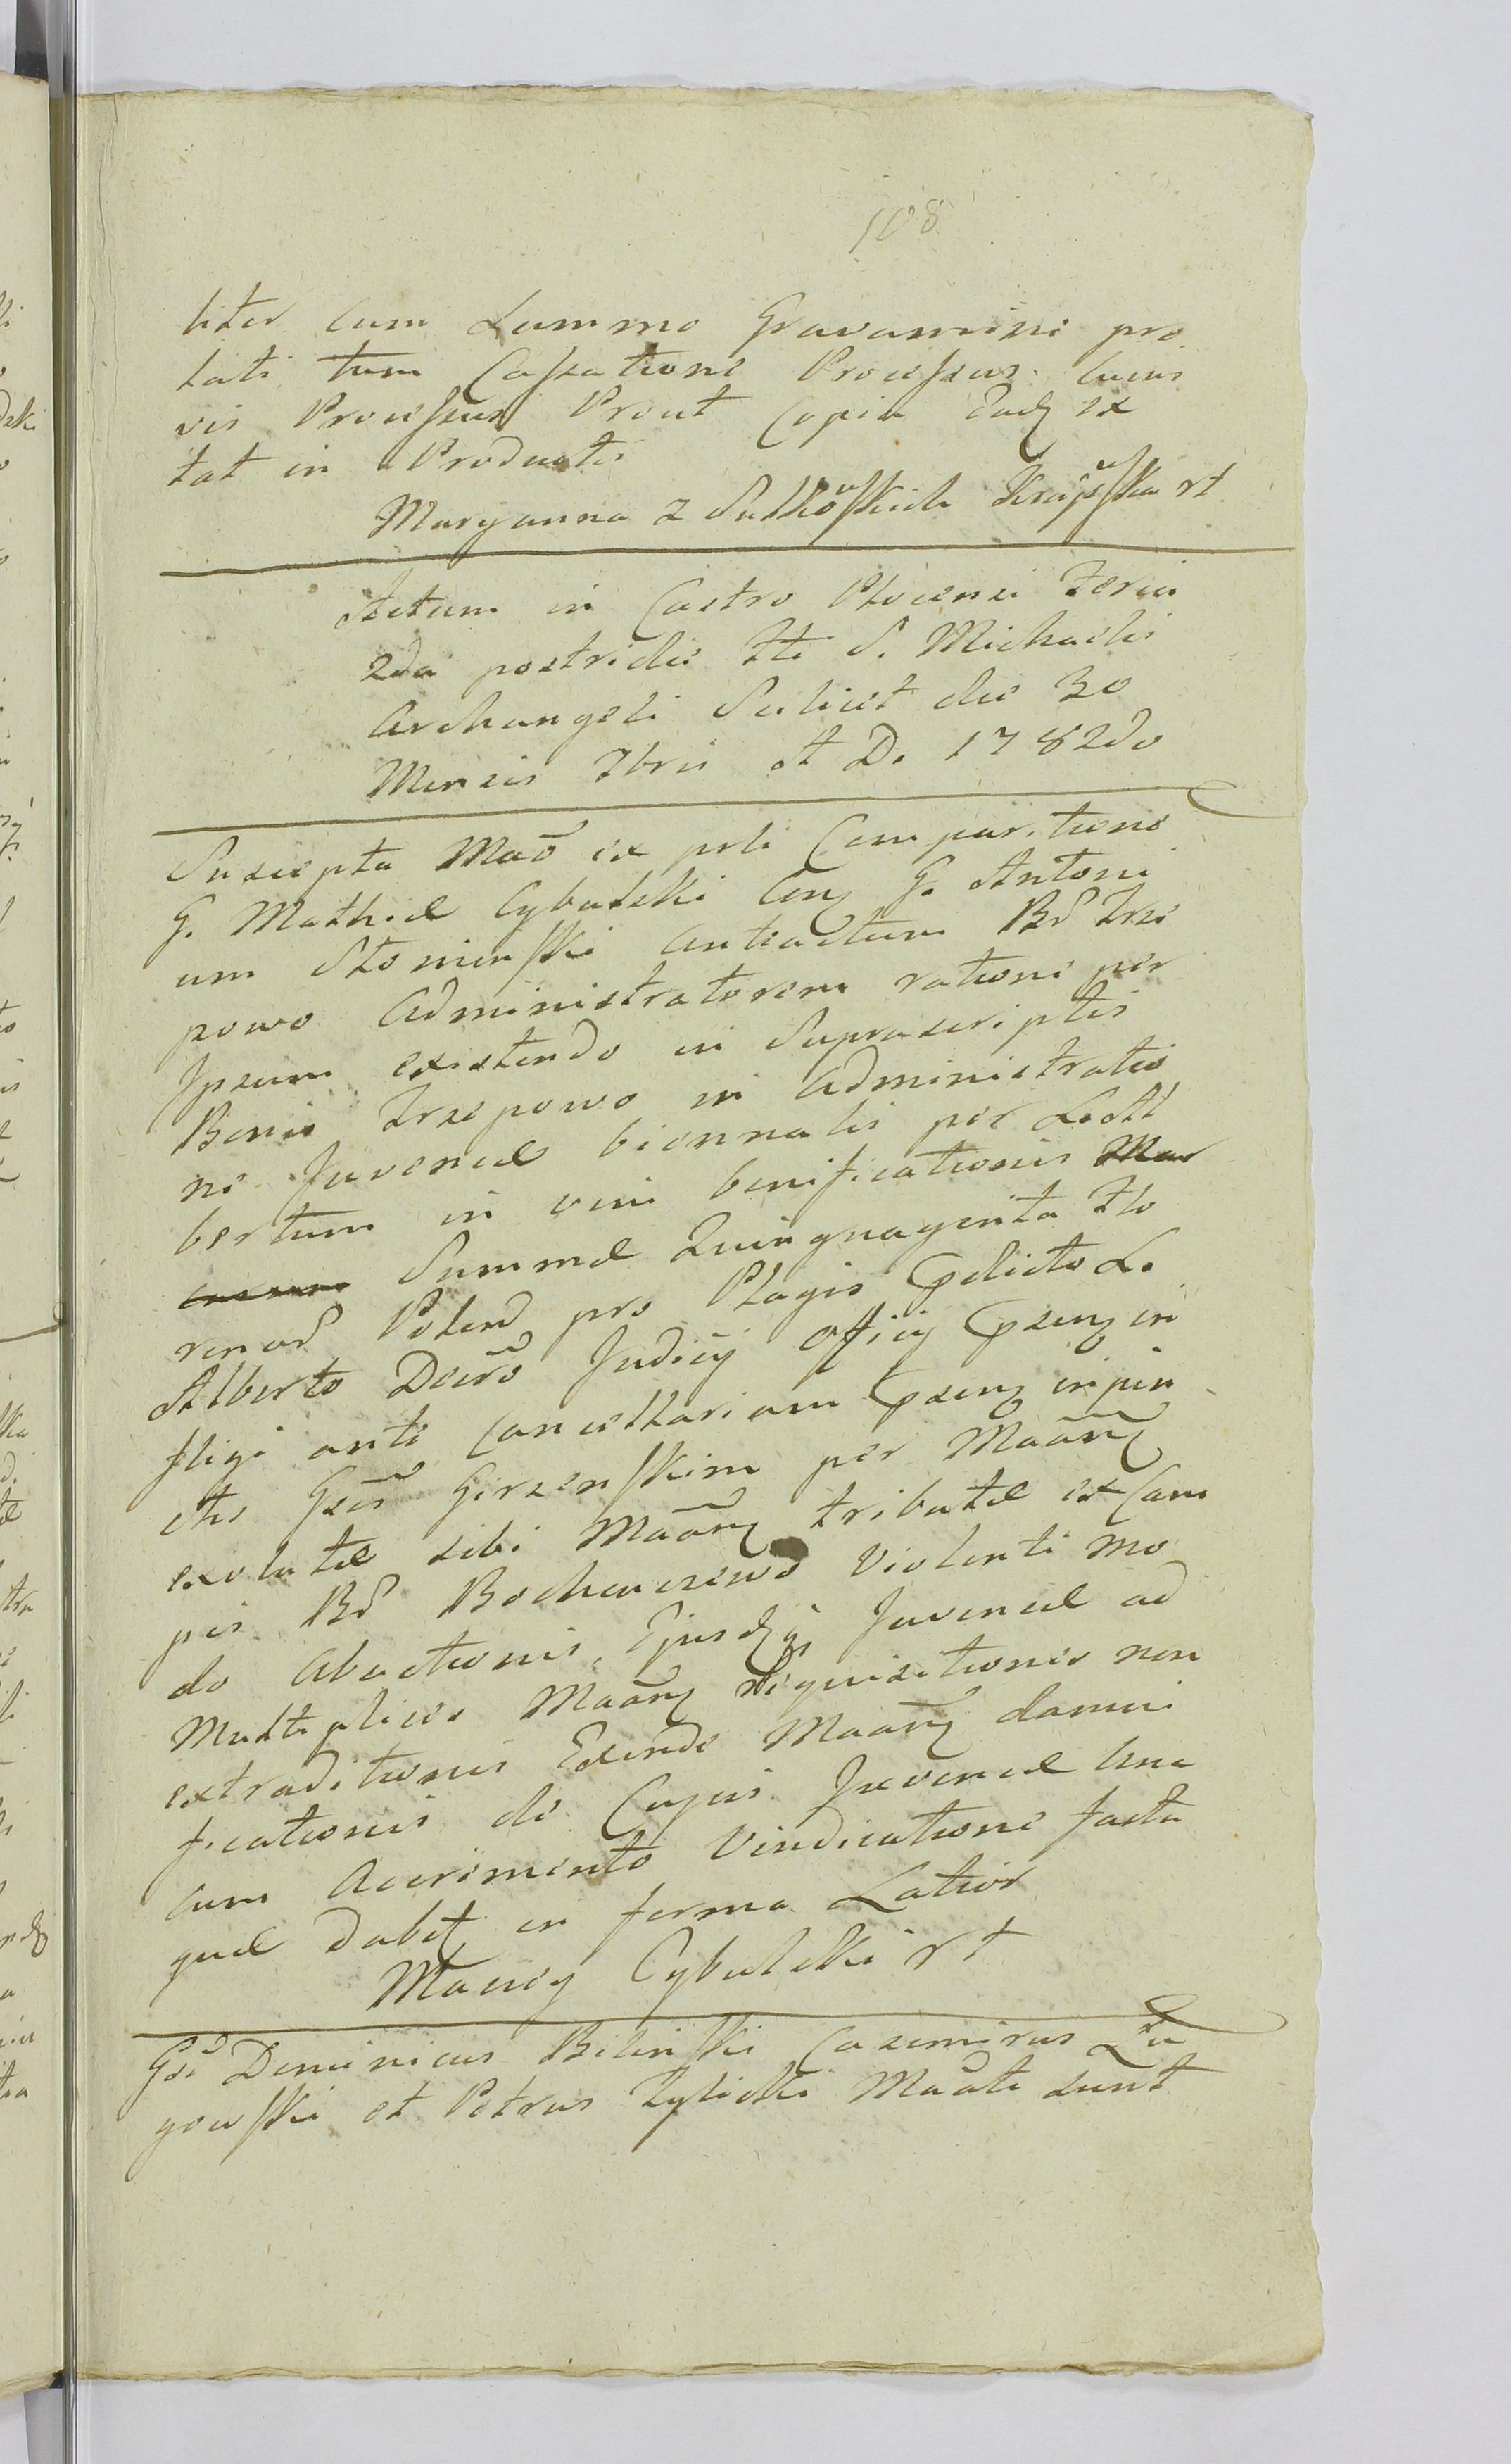 108
liter cum Summo Gravamine pro
lati tum Cassatione Processus cuius
vis Processus Prout Copia Eadz ex
tat in Productis
Maryanna z Sulkoskich Krajeska rt
Actum in Castro Plocensi Feria
2da postridie fti S. Michaelis
Archangeli Scilicet die 30
Mensis 7bris A D. 1782do
Suscepta Mao ex prli Comparitione
G. Mathiæ Cybulski Conz G. Antoni
um Slominski Anteactum Bd Trze
powo Administratorem ratione per
Ipsum existendo in Suprascriptis
Bonis Trzepowo in Administratio
ne Juvencæ biennalis per L. Al
bertum in vim bonificationis
Summæ Quinquagenta flo
renor Polend pro Plagis
Alberto Decro Judicij Officij pnsenz in
fligi ante Cancellariam pnsenz injun
ctis Gsis Girzenskim per Maanz
exolutæ sibi Maanz tributæ ex Cam
pis Bd Bochenszewo Violenti mo
do Abactionis, Ejusdz Juvencæ ad
Multiplices Maanz requisitiones non
extraditionis Exinde Maanz damni
ficationis de Cujus Juvencæ Una
cum Accrimento Vindicatione facta
quæ dabit in forma Latior
Maciey Cybulski rt
Gsi Dominicus Bilinski Casimirus Za
gowski et Petrus Zylicki Maati sunt